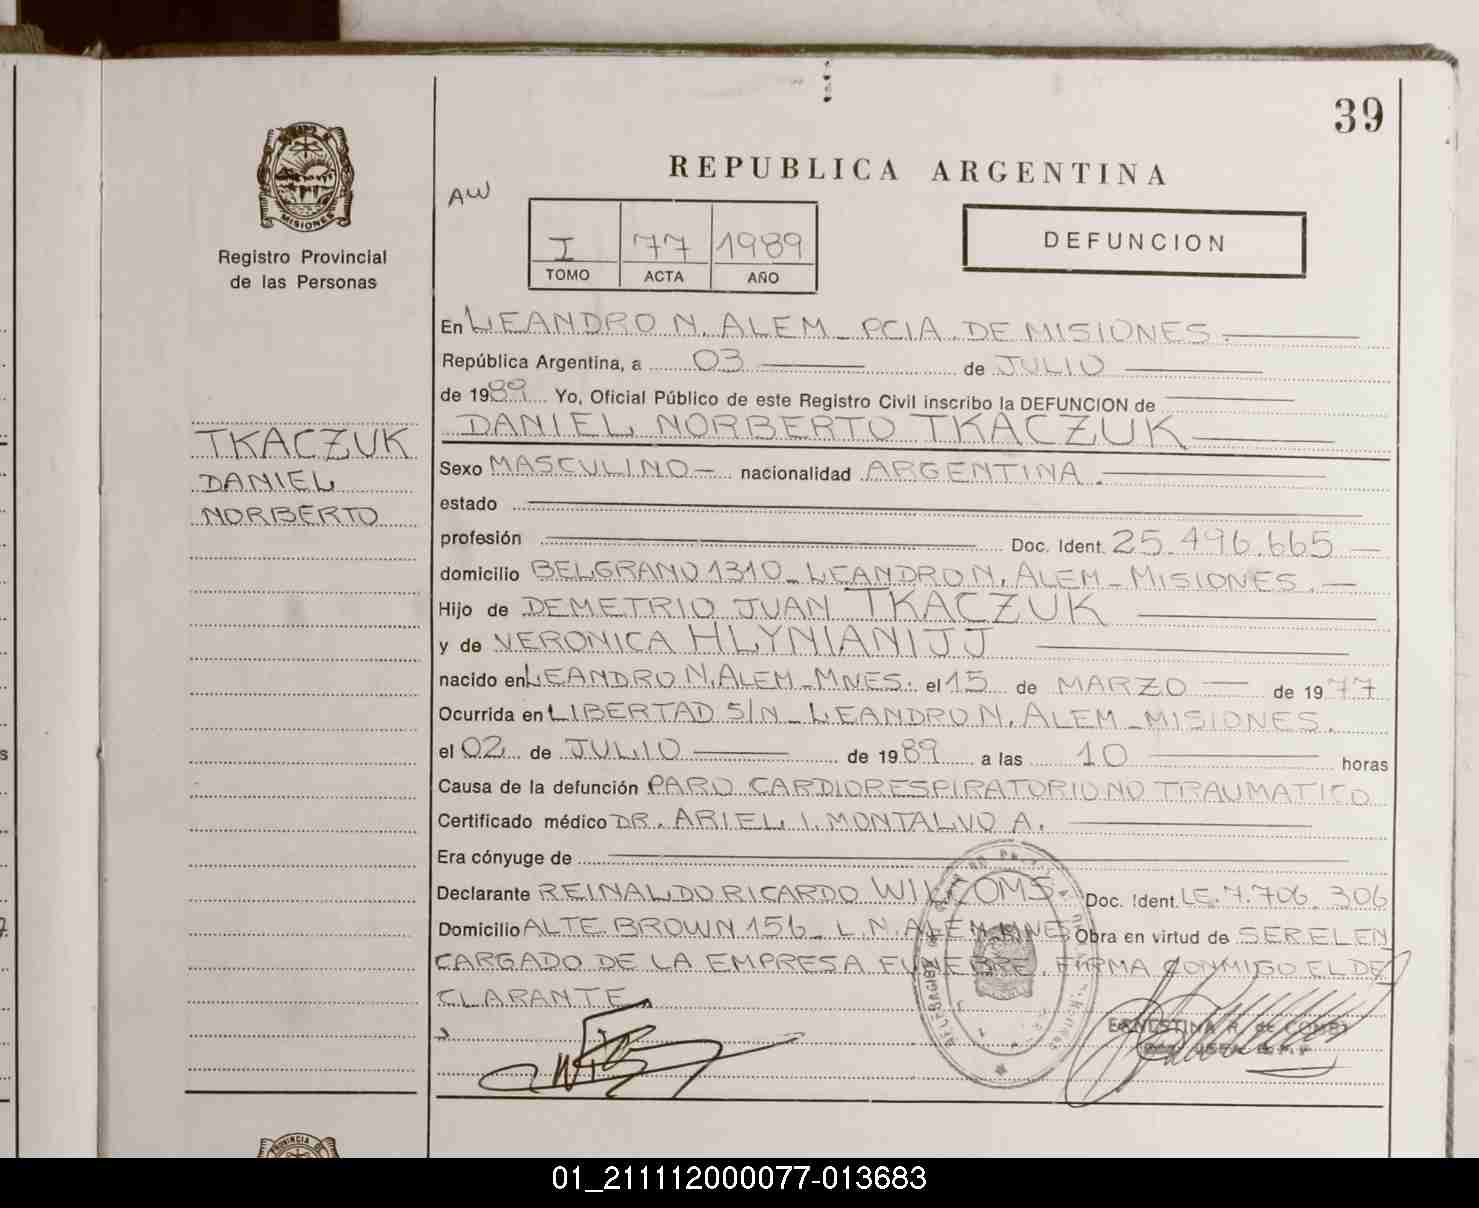 39
REPUBLICA ARGENTINA
AW
MISIONES
Registro Provincial
de las Personas
I 77 1989
TOMO ACTA AÑO
DEFUNCION
En LEANDRO N. ALEM - PCIA. DE MISIONES.
República Argentina, a 03 de JULIO
de 1989. Yo, Oficial Público de este Registro Civil inscribo la DEFUNCION de
DANIEL NORBERTO TKACZUK
TKACZUK
DANIEL
NORBERTO
Sexo MASCULINO - nacionalidad ARGENTINA.
estado
profesión Doc. Ident. 25.496.665
domicilio BELGRANO 1310 - LEANDRO N. ALEM - MISIONES.
Hijo de DEMETRIO JUAN TKACZUK
y de VERONICA HLYNIANIJJ
nacido en LEANDRO N. ALEM - MNES. el 15 de MARZO de 1977
Ocurrida en LIBERTAD S/N - LEANDRO N. ALEM - MISIONES.
el 02 de JULIO de 1989 a las 10 horas
Causa de la defunción PARO CARDIORESPIRATORIO NO TRAUMATICO
Certificado médico DR. ARIEL I. MONTALVO A.
Era cónyuge de
Declarante REINALDO RICARDO WILCOMS Doc. Ident. LE. 7.706.306
Domicilio ALTE BROWN 156 - L.N. ALEM MNES Obra en virtud de SER EL EN
CARGADO DE LA EMPRESA FUNEBRE. FIRMA CONMIGO EL DE
CLARANTE
ERNESTINA R. de
01_211112000077-013683